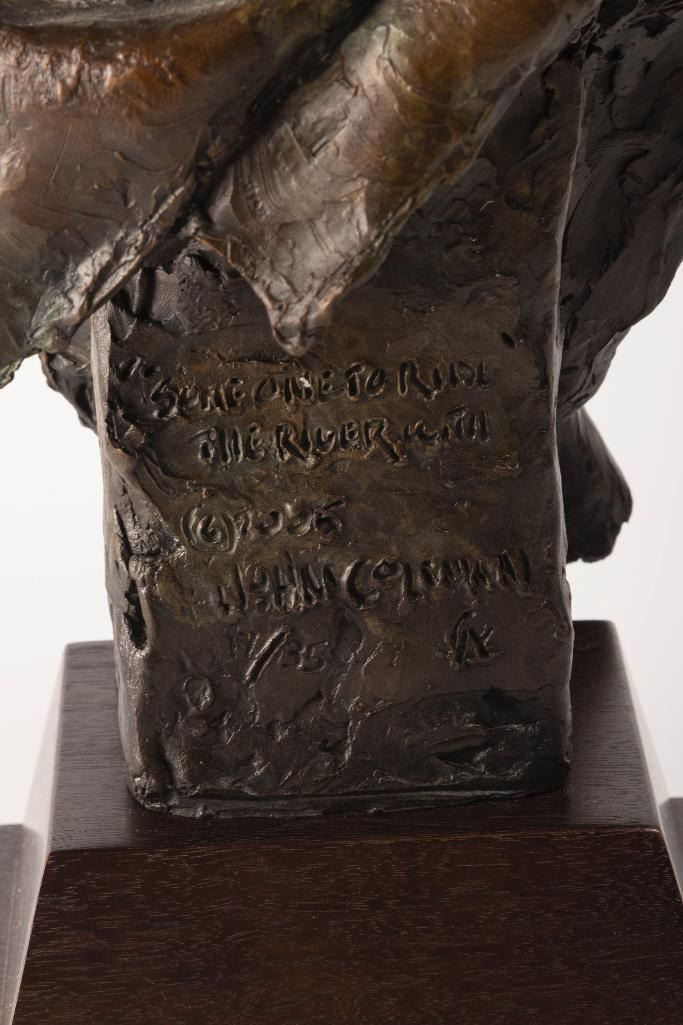 SOMEONE TO RIDE
THE RIVER WITH
(C) 2005
JOHN COLEMAN
17/35